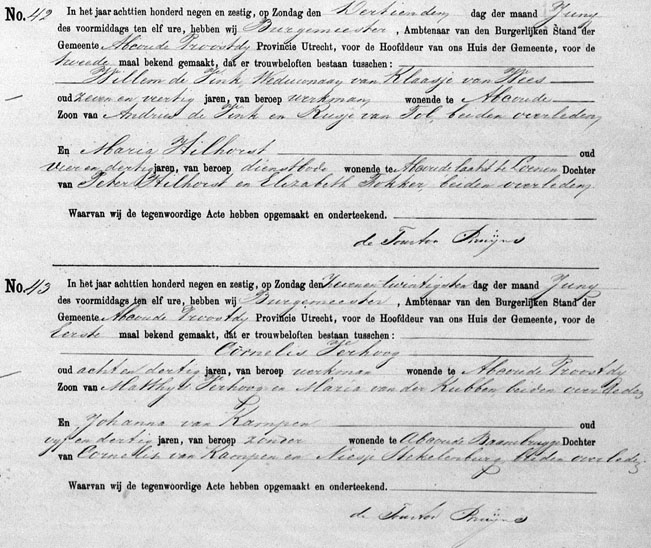 No. 42 In het jaar achttien honderd negen en zestig, op Zondag den Dertienden dag der maand Juny
des voormiddags ten elf ure, hebben wij Burgemeester, Ambtenaar van den Burgerlijken Stand der
Gemeente Abcoude Proostdy Provincie Utrecht, voor de Hoofddeur van ons Huis der Gemeente, voor de
tweede maal bekend gemaakt, dat er trouwbeloften bestaan tusschen:
Willem de Vink, Weduwnaar van Klaasje van Wees
oud zeven en veertig jaren, van beroep werkman wonende te Abcoude
Zoon van Andries de Vink en Rusje van Tol, beiden overleden,
En Maria Hilhorst oud
vier en dertig jaren, van beroep dienstbode wonende te Abcoude laatst te Loenen Dochter
van Peter Hilhorst en Elizabeth Fokker beiden overleden,
Waarvan wij de tegenwoordige Acte hebben opgemaakt en onderteekend.
de Ruijns
No. 43 In het jaar achttien honderd negen en zestig, op Zondag den Zeven en twintigsten dag der maand Juny
des voormiddags ten elf ure, hebben wij Burgemeester, Ambtenaar van den Burgerlijken Stand der
Gemeente Abcoude Proostdy Provincie Utrecht, voor de Hoofddeur van ons Huis der Gemeente, voor de
Eerste maal bekend gemaakt, dat er trouwbeloften bestaan tusschen:
Cornelis Verhoog
oud acht en dertig jaren, van beroep werkman wonende te Abcoude Proostdy
Zoon van Matthys Verhoog en Maria van der Kubben beiden overleden
En Johanna van Kampen oud
vyf en dertig jaren, van beroep zonder wonende te Abcoude Baambrugge Dochter
van Cornelis van Kampen en Niesje Stekelenburg, beiden overleden
Waarvan wij de tegenwoordige Acte hebben opgemaakt en onderteekend.
de Ruijns